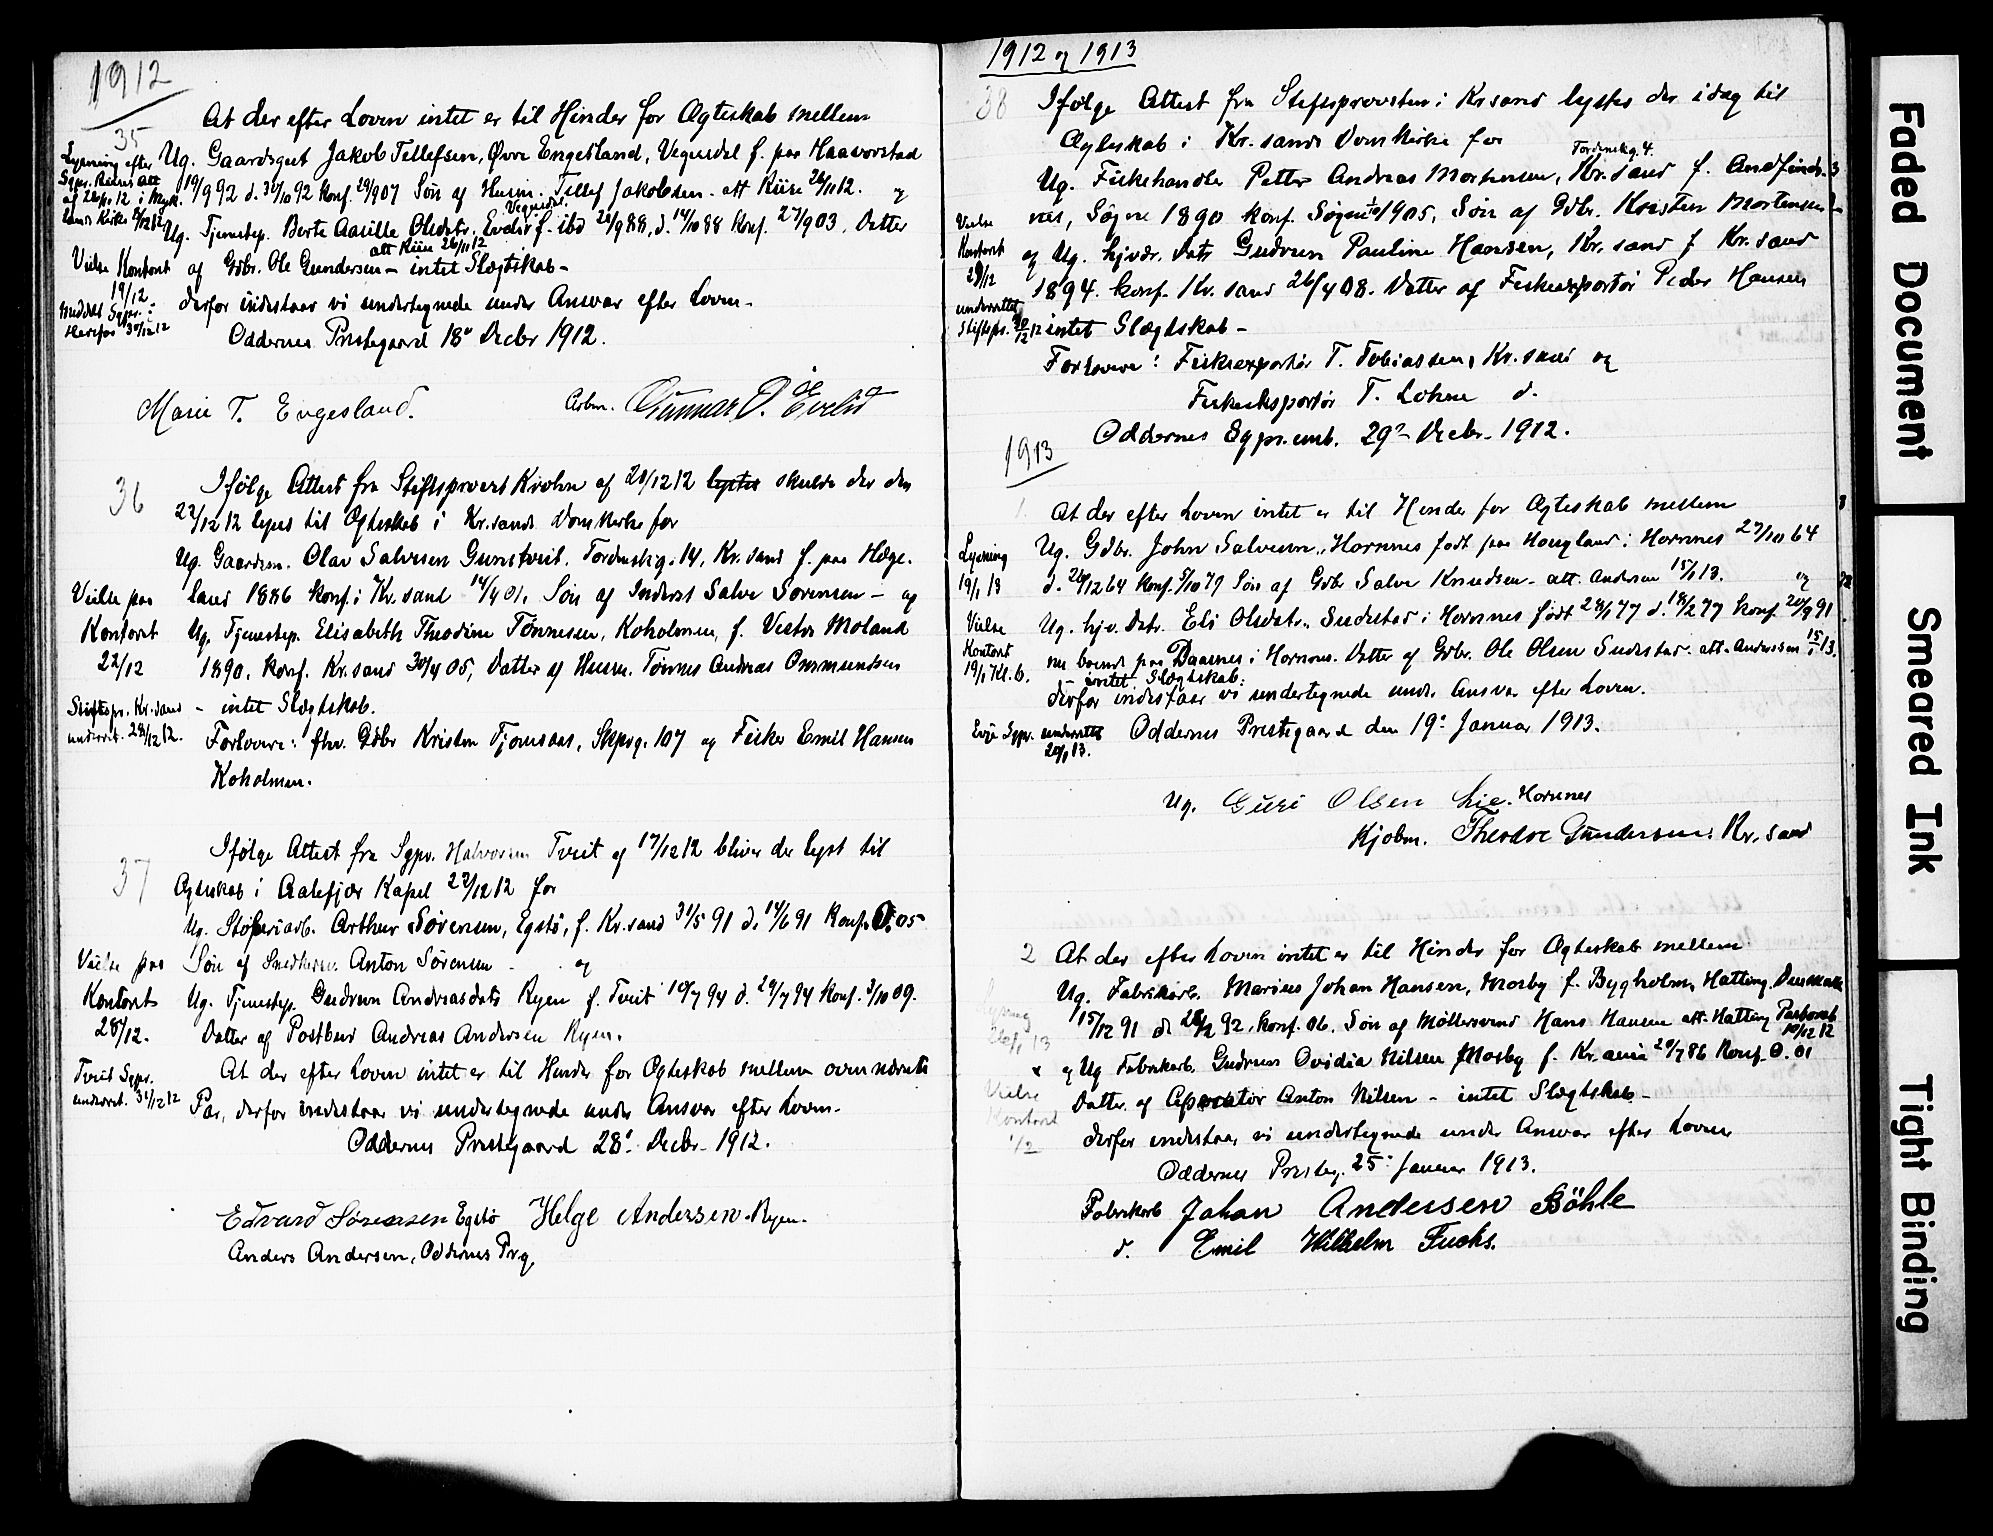 1912
35
At der efter Loven intet er til Hinder for Ægteskab mellem
Ug. Gaardsgut Jakob Tellefsen, Øvre Engesland, Vegusdal f. paa Haavorstad
19/9 92 d. 30/10 92 Konf. 29/907 Søn af Husm. Tellef Jakobsen - att Riise 26/11 12. og
Vegusdal.
Ug. Tjenestep. Berte Aasille Olsdtr. Evdsir f. ibd 20/9 88, d. 14/10 88 Konf. 27/903, Datter
att Riise 26/11 12
af Gdbr. Ole Gundersen - intet Slægtskab -
derfor indestaar vi undertegnede under Ansvar efter Loven -
Oddernes Prestegaard 18' Decbr 1912.
Lysning efter
Sgpr. Riises att
Vielse Kontoret
19/12.
Meddelt Sgpr. i
Herefos 30/12 12
Marie T. Engesland. Arbm. Gunnar O. Evelid
36
Ifølge Attest fra Stiftsprovst Krohn af 20/12 12 lystes skulde der den
22/12 12 lyses til Ægteskab i Kr.sands Domkirke for
Ug. Gaardsm. Olav Salvesen Gunstveit, Tordenskjg. 14, Kr.sand f. paa Hæge-
land 1886 konf. i Kr.sand 14/4 01, Søn af Inderst Salve Sørensen - og
Ug. Tjenestep. Elisabeth Theodine Tønnesen, Koholmen, f. Vestre Moland
1890, konf. Kr.sand 30/4 05, Datter af Husm. Tønnes Andreas Ommundsen
- intet Slægtskab.
Forlovere: fhv. Gdbr Kristen Tjomsaas, Skprg. 107 og Fisker Emil Hansen
Koholmen.
Vielse paa
Kontoret
22/12
Stiftspr. Kr.sand
underret. 24/12 12.
37
Ifølge Attest fra Sgpr. Halvorsen Tveit af 17/12 12 bliver der lyst til
Ægteskab i Aalefjær Kapel 22/12 12 for
Ug. Støberiarb. Arthur Sørensen, Egstø, f. Kr.sand 31/5 91 d. 14/6 91 Konf. O. 05
Søn af Snedkersv. Anton Sørensen - og
Ug. Tjenestep. Gudrun Andreasdatr Ryen f. Tveit 10/7 94 d. 29/7 94 Konf. 3/10 09.
Datter af Postbud Andreas Andersen Ryen.
At der efter Loven intet er til Hinder for Ægteskab mellem ovennævnte
Par, derfor indestaar vi undertegnede under Ansvar efter Loven -
Oddernes Prestegaard 28' Decbr. 1912.
Vielse paa
Kontoret
28/12.
Tveit Sgpr.
underret. 31/12 12
Edvard Sørensen Egstø Helge Andersen - Ryen.
Anders Andersen, Oddernes Prg.
1912 og 1913
38
Ifølge Attest fra Stiftsprovsten i Kr.sand lystes der idag til
Ægteskab i Kr.sands Domkirke for
Tordenskg. 4.
Ug. Fiskehandler Petter Andreas Mortensen, Kr.sand f. Andfinds-
nes, Søgne 1890 konf. Søgne 1/10 1905, Søn af Gdbr. Kristen Mortensen
og Ug. hjvær. Datr Gudrun Pauline Hansen, Kr.sand f. Kr.sand
1894. konf. Kr.sand 26/4 08. Datter af Fiskeexportør Peder Hansen
intet Slægtskab -
Forlovere: Fiskeexportør T. Tobiassen, Kr.sand og
Fiskeeksportør T. Lohne d.
Oddernes Sgpr.emb. 29' Decbr. 1912.
Vielse
Kontoret
29/12
underrettet
Stiftspr. 30/12 12
1913
1.
At der efter Loven intet er til Hinder for Ægteskab mellem
Ug. Gdbr. John Salvesen, Hornnes født paa Haugland i Hornnes 27/10 64
d. 26/12 64 Konf. 5/10 79 Søn af Gdbr Salve Knudsen - att. Andersen 15/1 13. og
Ug. hjv. Dtr. Eli Olsdtr. Sudestad i Hornnes født 24/1 77 d. 18/2 77 konf. 20/9 91
nu boende paa Daasnes i Hornnes. Datter af Gdbr. Ole Olsen Sudestad - att. Anderssen 15/1 13.
intet Slægtskab.
derfor indestaar vi undertegnede under Ansvar efter Loven.
Oddernes Prestegaard den 19' Januar 1913.
Lysning
19/1 13
Vielse
Kontoret
19/1 Kl. 6.
Evje Sgpr. underrettet
20/1 13.
Ug. Guri Olsen Lie. Hornnes
Kjøbm. Theodor Gundersen. Kr.sand
2
At der efter Loven intet er til Hinder for Ægteskab mellem
Ug. Fabrikarb. Marius Johan Hansen, Mosby f. Bygholm, Hatting, Danmark
15/12 91 d. 28/2 92, konf. 06. Søn af Møllersvend Hans Hansen att. Hatting Pastorat
10/12 12
og Ug Fabrikarb. Gudrun Ovidia Nilsen Mosby f. Kr.ania 29/7 86 Konf. O. 01
Datter af Anton Nilsen - intet Slægtskab -
derfor indestaar vi undertegnede under Ansvar efter Loven
Oddernes Presteg. 25' Januar 1913.
Lysning
26/1 13
Vielse
Kontoret
1/2
Fabrikarb Johan Andersen Böhle
d. Emil Wilhelm Fuchs.
Faded Document
Smeared Ink
Tight Binding